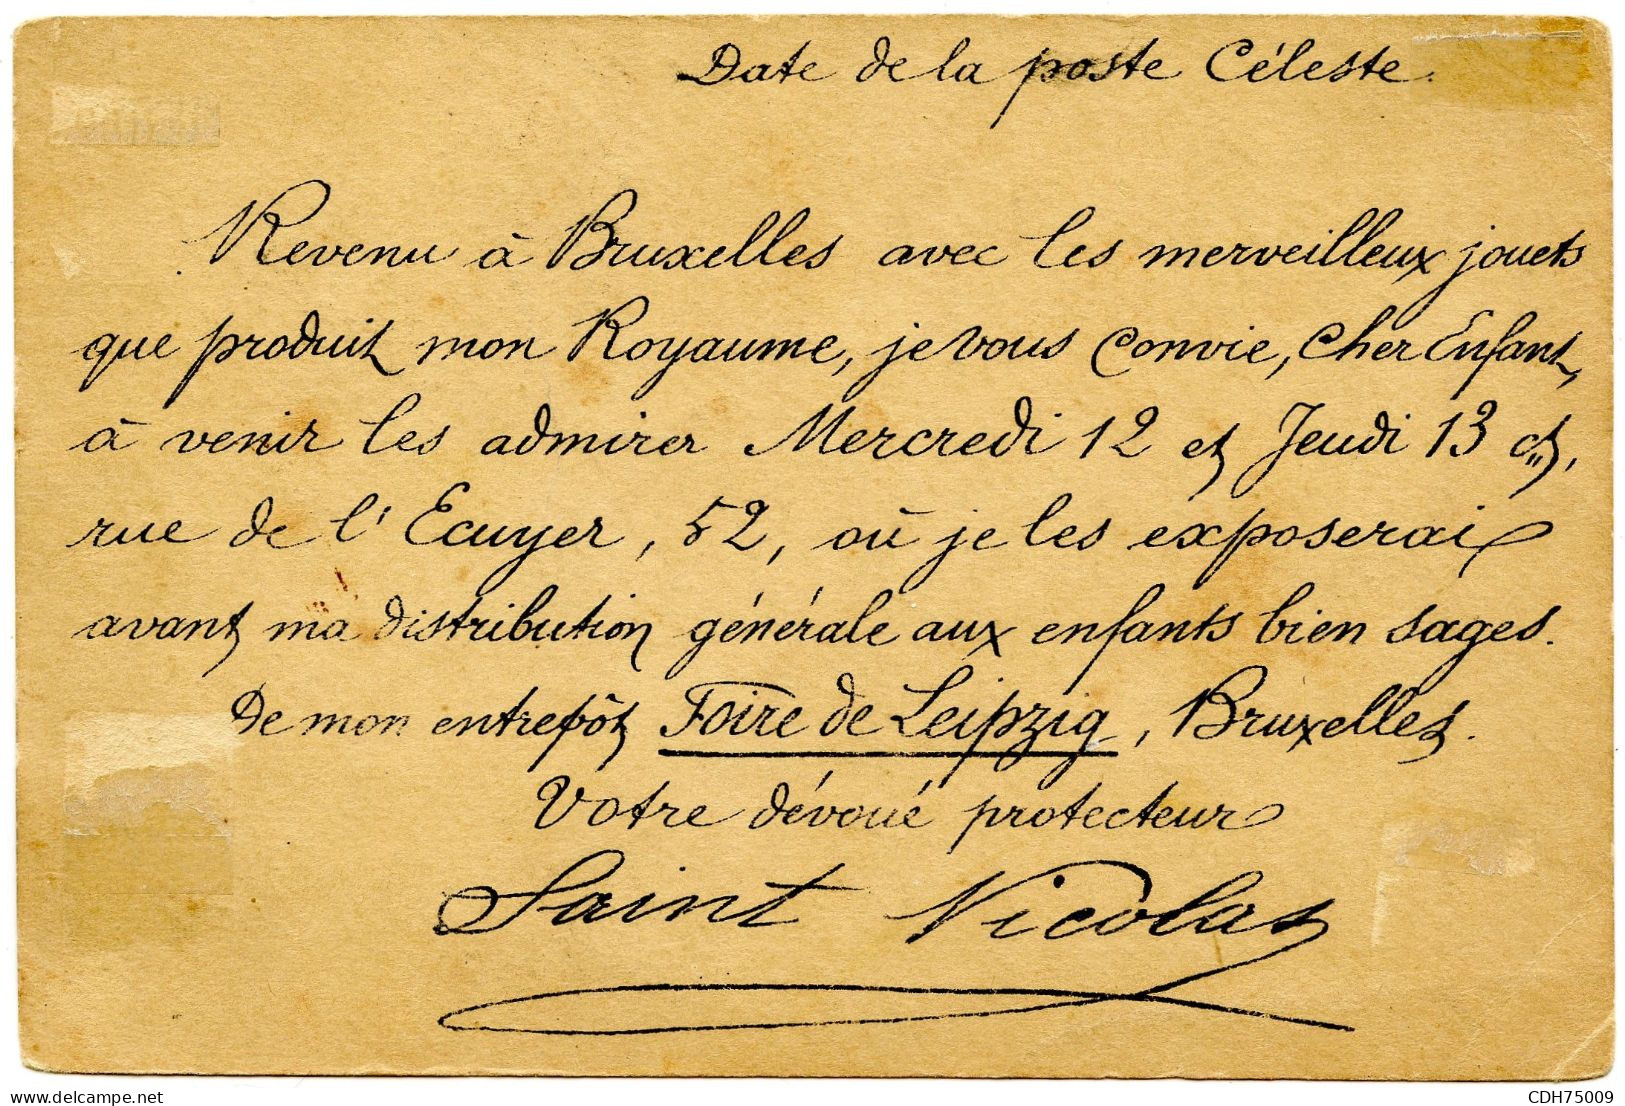 Date de la poste Céleste.
Revenu à Bruxelles avec les merveilleux jouets
que produit mon Royaume, je vous convie, Cher Enfant,
à venir les admirer Mercredi 12 et Jeudi 13 ct,
rue de l'Ecuyer, 52, où je les exposerai
avant ma distribution générale aux enfants bien sages.
De mon entrepôt Foire de Leipzig, Bruxelles.
Votre dévoué protecteur
Saint Nicolas
delcampe.net
CDH75009